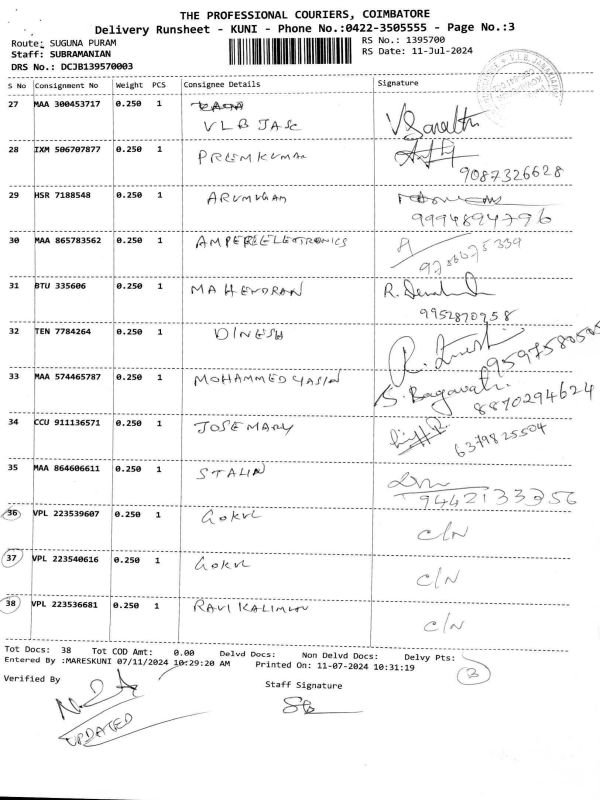 THE PROFESSIONAL COURIERS, COIMBATORE
Delivery Runsheet - KUNI - Phone No.:0422-3505555 - Page No.:3
Route: SUGUNA PURAM RS No.: 1395700
Staff: SUBRAMANIAN RS Date: 11-Jul-2024
DRS No.: DCJB139570003
S No Consignment No Weight PCS Consignee Details Signature
27 MAA 300453717 0.250 1
VLB JASC V Sarath
28 IXM 506707877 0.250 1 PREMKUMAR
9087326628
29 HSR 7188548 0.250 1 ARUMUGAM
9994894796
30 MAA 865783562 0.250 1 AMPERE ELECTRONICS
31 BTU 335606 0.250 1 MAHENDRAN R.
9952870758
32 TEN 7784264 0.250 1 DINESH
R. Dinesh 9597580505
33 MAA 574465787 0.250 1 MOHAMMED YASIN S. Bagavath
8870294624
34 CCU 911136571 0.250 1 JOSEMARY
6379825504
35 MAA 864606611 0.250 1 STALIN
9442133356
36 VPL 223539607 0.250 1 GOKUL
C/N
37 VPL 223540616 0.250 1 GOKUL
C/N
38 VPL 223536681 0.250 1 RAVI
C/N
Tot Docs: 38 Tot COD Amt: 0.00 Delvd Docs: Non Delvd Docs: Delvy Pts:
Entered By :MARESKUNI 07/11/2024 10:29:20 AM Printed On: 11-07-2024 10:31:19
3
Verified By Staff Signature
UPDATED